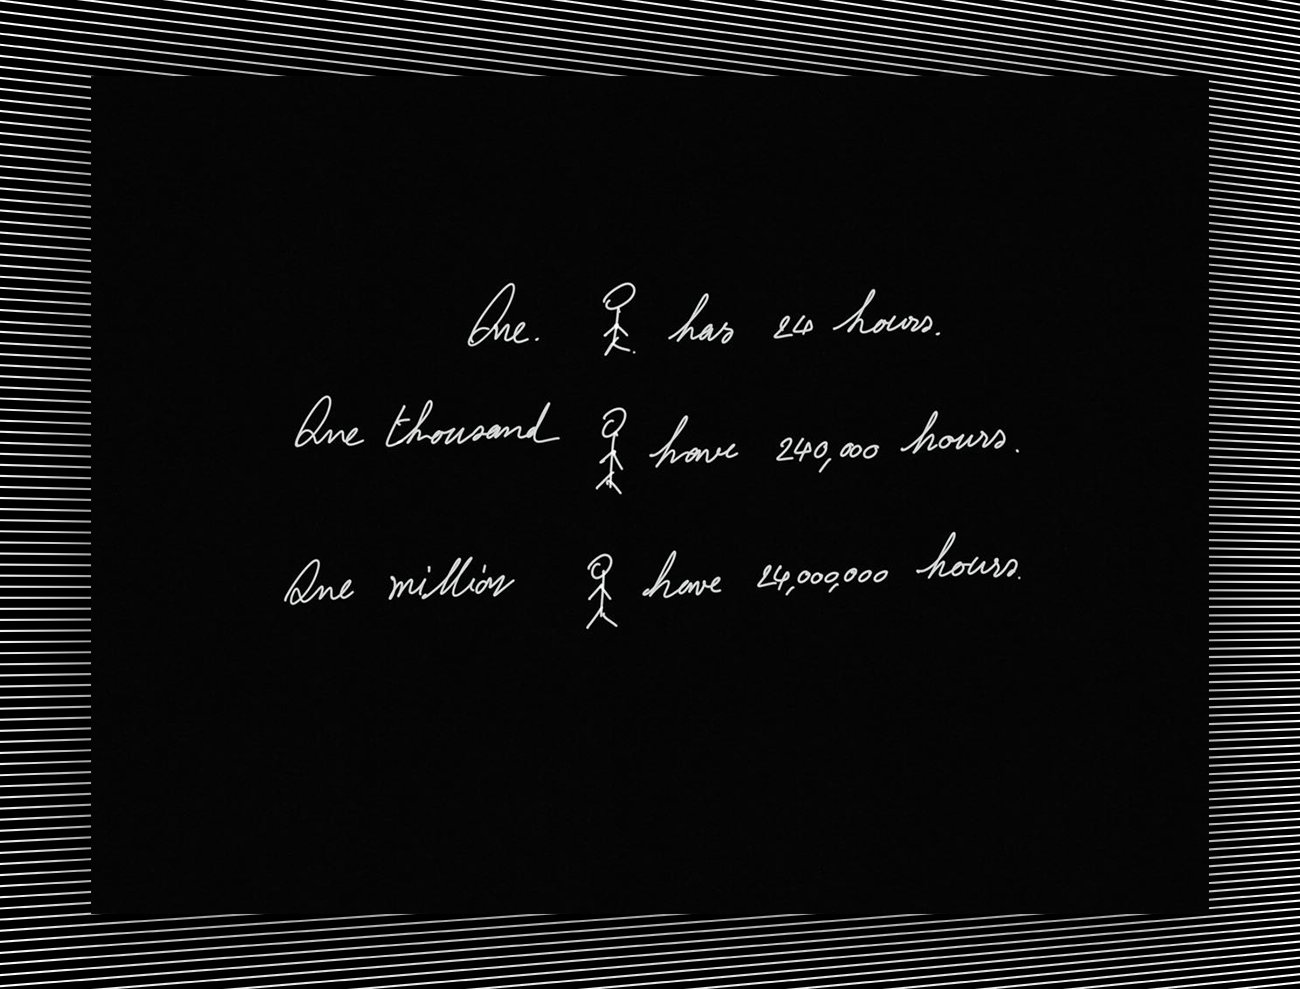 One. has 24 hours.
One thousand have 240,000 hours.
One million have 24,000,000 hours.